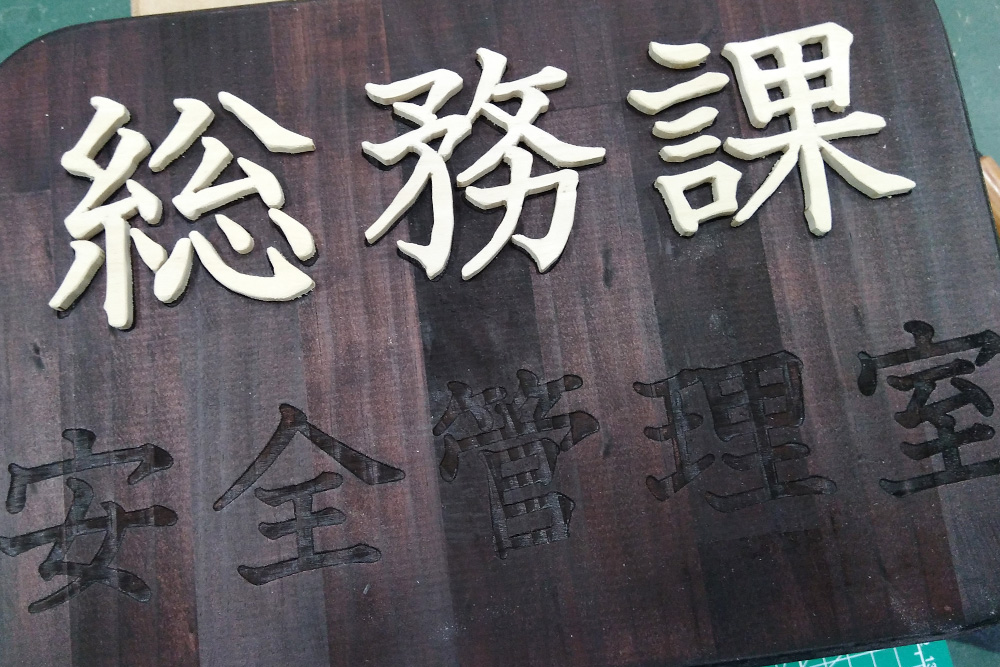 総務課
安全管理室